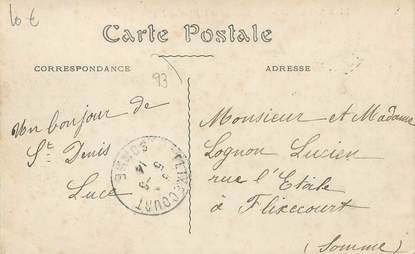 10 €
Carte Postale
CORRESPONDANCE
ADRESSE
93
Un bonjour de
St Denis
Luce
FLIXECOURT
SOMME
14
Monsieur et Madame
Lognon Lucien
rue l'Etoile
à Flixecourt
(Somme)